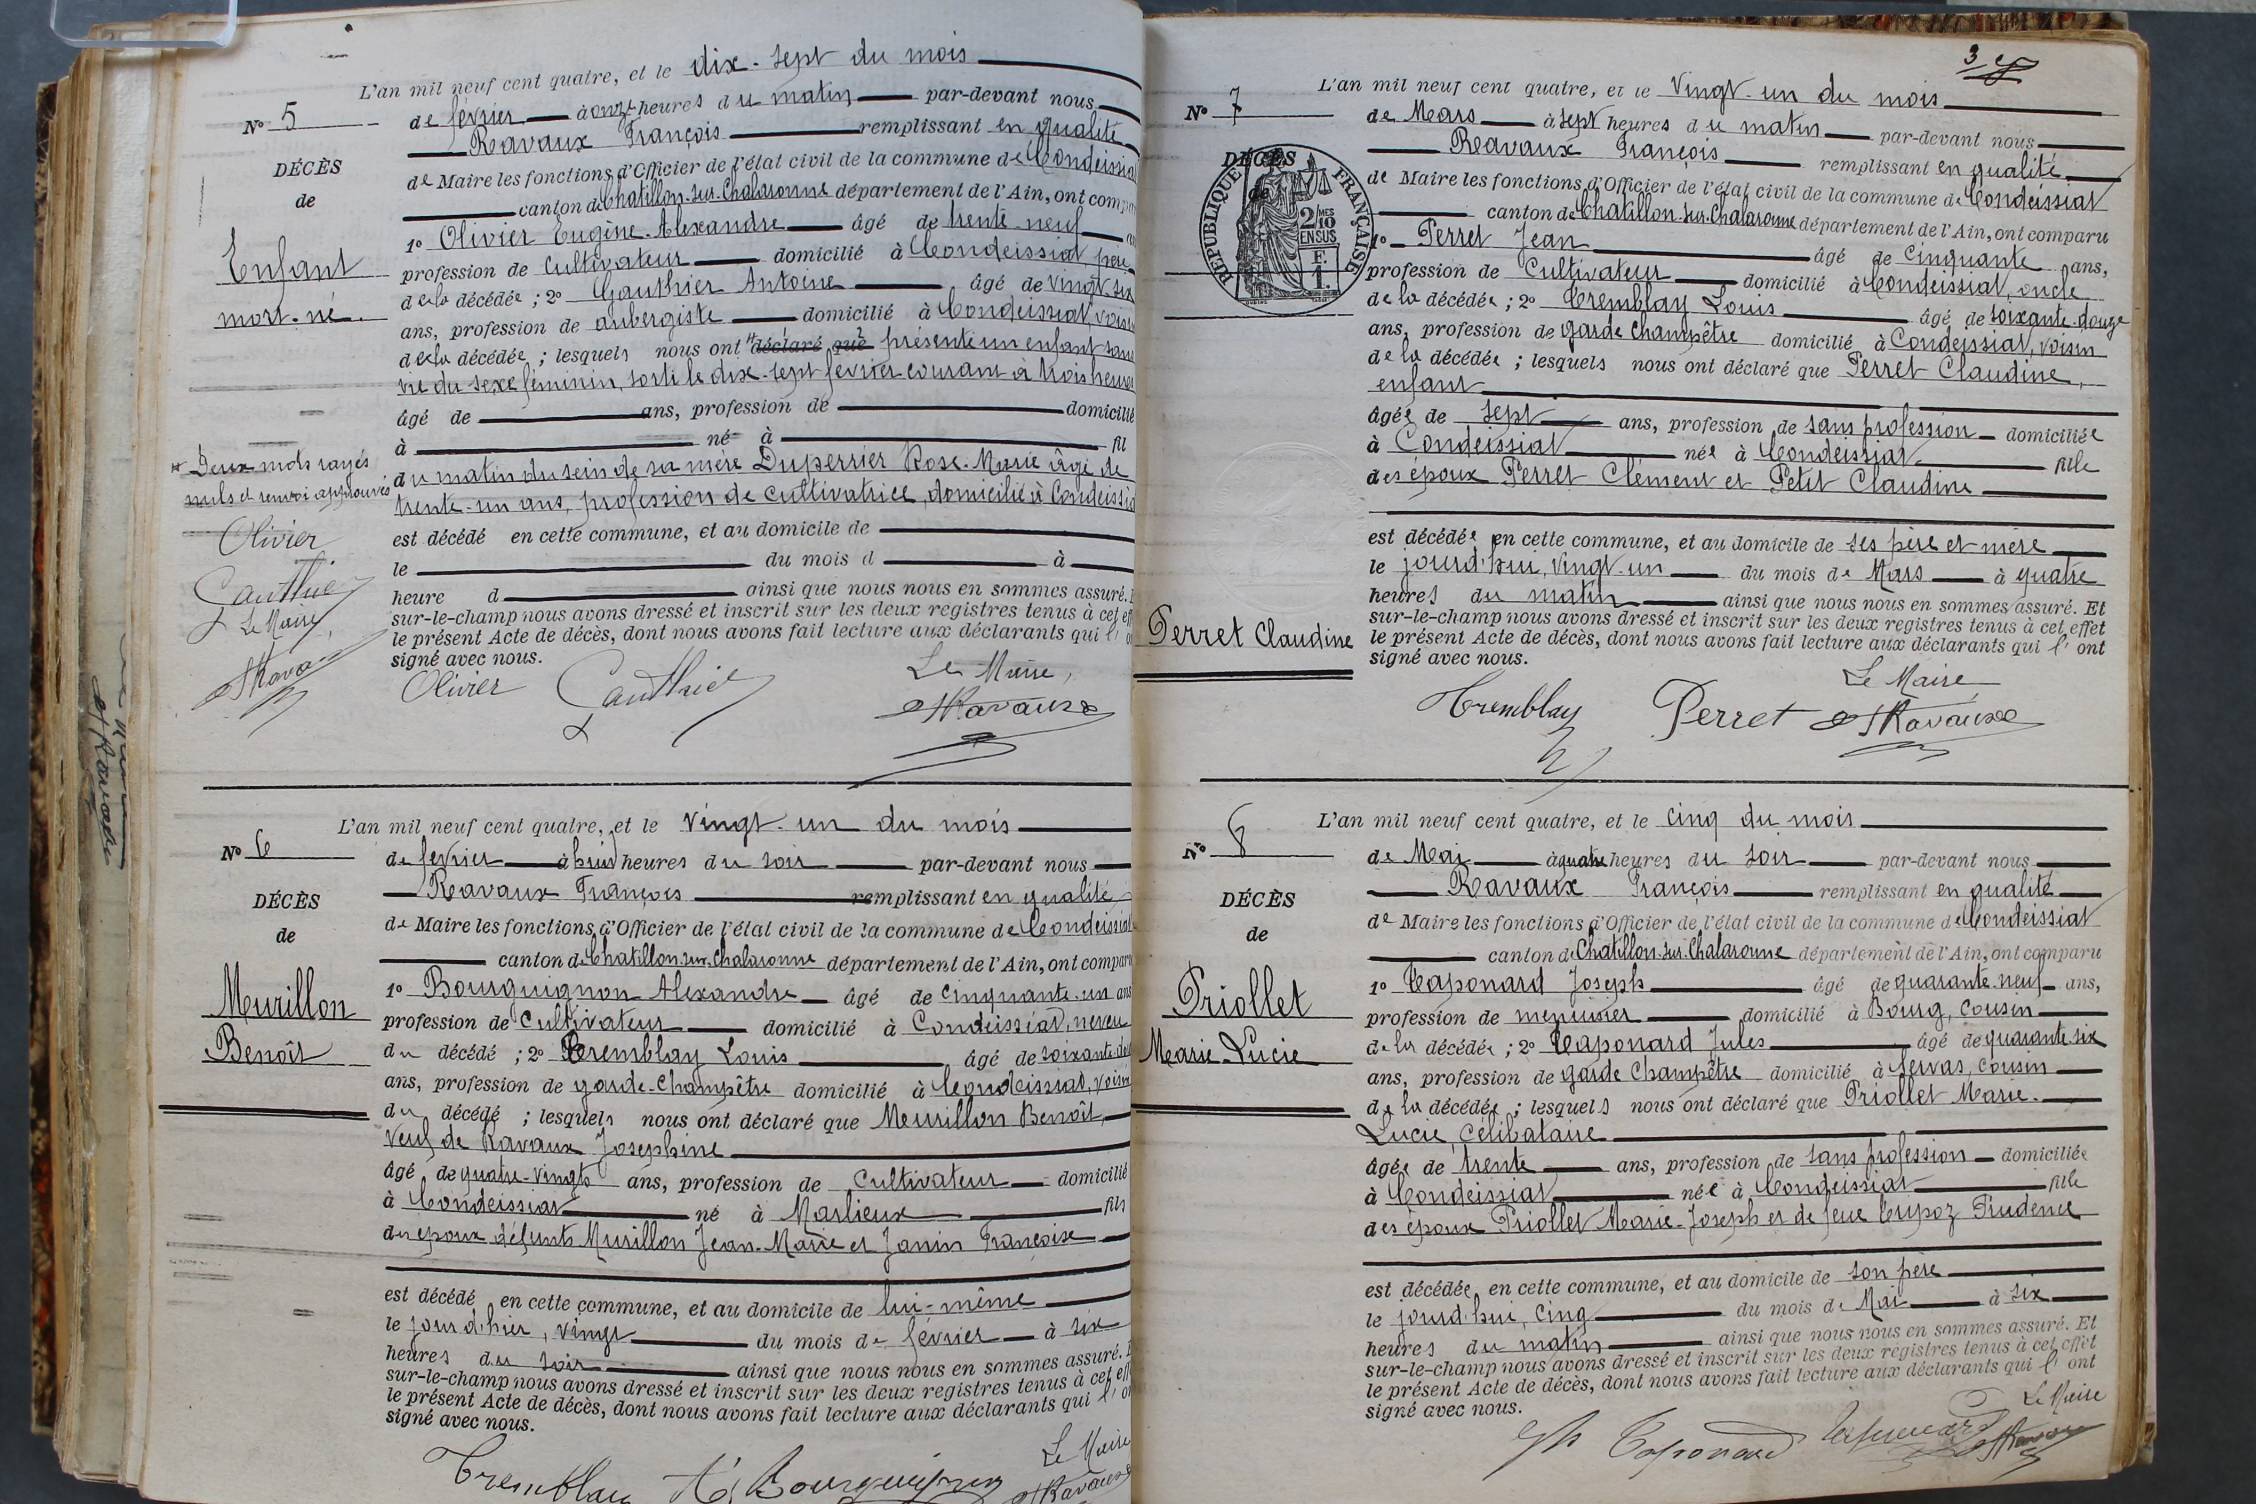 L'an mil neuf cent quatre, et le dix-sept du mois
N° 5
de février à onze heures du matin par-devant nous
Ravaux François remplissant en qualité
DÉCÈS
de
de Maire les fonctions d'Officier de l'état civil de la commune de Condeissiat
canton de Chatillon-sur-Chalaronne département de l'Ain, ont comparu
Enfant
mort-né.
1° Olivier Eugène-Alexandre âgé de trente-neuf
profession de cultivateur domicilié à Condeissiat, père
de la décédée ; 2° Gauthier Antoine âgé de vingt-six
ans, profession de aubergiste domicilié à Condeissiat, voisin
de la décédée ; lesquels nous ont déclaré que présenté un enfant sans
vie du sexe féminin, sorti le dix-sept février courant à trois heures
âgé de ans, profession de domicilié
à né à fil
* Deux mots rayés
nuls et renvoi approuvés
du matin du sein de sa mère Duperrier Rose-Marie âgé de
trente-un ans, profession de cultivatrice, domicilié à Condeissiat
Olivier
Gauthier
Le Maire,
Ravaux
est décédé en cette commune, et au domicile de
le du mois d à
heure d ainsi que nous nous en sommes assuré.
sur-le-champ nous avons dressé et inscrit sur les deux registres tenus à cet eff
le présent Acte de décès, dont nous avons fait lecture aux déclarants qui l'
signé avec nous.
Olivier Gauthier Le Maire,
Ravaux
L'an mil neuf cent quatre, et le vingt-un du mois
N° 6
de février à huit heures du soir par-devant nous
Ravaux François remplissant en qualité
DÉCÈS
de
de Maire les fonctions d'Officier de l'état civil de la commune de Condeissiat
canton de Chatillon-sur-Chalaronne département de l'Ain, ont comparu
Murillon
Benoît
1° Bourguignon Alexandre âgé de cinquante-un ans
profession de Cultivateur domicilié à Condeissiat, neveu
du décédé ; 2° Tremblay Louis âgé de soixante-do
ans, profession de garde-champêtre domicilié à Condeissiat, voisin
du décédé ; lesquels nous ont déclaré que Murillon Benoît,
Veuf de Ravaux Josephine
âgé de quatre-vingts ans, profession de Cultivateur domicilié
à Condeissiat né à Marlieux fils
des époux défunts Murillon Jean-Marie et Janin Françoise
est décédé en cette commune, et au domicile de lui-même
le jour d'hier, vingt du mois de février à six
heures du soir ainsi que nous nous en sommes assuré.
sur-le-champ nous avons dressé et inscrit sur les deux registres tenus à cet eff
le présent Acte de décès, dont nous avons fait lecture aux déclarants qui l'
signé avec nous.
Le Maire
Tremblay A. Bourguignon Ravaux
3
L'an mil neuf cent quatre, et le Vingt-un du mois
N° 7
de Mars à sept heures du matin par-devant nous
Ravaux François remplissant en qualité
DÉCÈS
de
RÉPUBLIQUE FRANÇAISE
2/10 MES
EN SUS
F.
1.
de Maire les fonctions d'Officier de l'état civil de la commune de Condeissiat
canton de Chatillon-sur-Chalaronne département de l'Ain, ont comparu
1° Perret Jean âgé de Cinquante ans,
profession de Cultivateur domicilié à Condeissiat, oncle
de la décédée ; 2° Tremblay Louis âgé de soixante-douze
ans, profession de garde champêtre domicilié à Condeissiat, voisin
de la décédée ; lesquels nous ont déclaré que Perret Claudine,
enfant
âgée de sept ans, profession de sans profession domiciliée
à Condeissiat née à Condeissiat fille
des époux Perret Clément et Petit Claudine
est décédée en cette commune, et au domicile de ses père et mère
le jourd'hui, vingt-un du mois de Mars à quatre
heures du matin ainsi que nous nous en sommes assuré. Et
Perret Claudine
sur-le-champ nous avons dressé et inscrit sur les deux registres tenus à cet effet
le présent Acte de décès, dont nous avons fait lecture aux déclarants qui l'ont
signé avec nous.
Le Maire
Tremblay Perret Ravaux
L'an mil neuf cent quatre, et le cinq du mois
N° 8
de Mai à quatre heures du soir par-devant nous
Ravaux François remplissant en qualité
DÉCÈS
de
de Maire les fonctions d'Officier de l'état civil de la commune de Condeissiat
canton de Chatillon-sur-Chalaronne département de l'Ain, ont comparu
Priollet
Marie-Lucie
1° Taponard Joseph âgé de quarante-neuf ans,
profession de menuisier domicilié à Bourg, cousin
de la décédée ; 2° Taponard Jules âgé de quarante-six
ans, profession de garde champêtre domicilié à Servas, cousin
de la décédée ; lesquels nous ont déclaré que Priollet Marie-
Lucie, célibataire
âgée de trente ans, profession de sans profession domiciliée
à Condeissiat née à Condeissiat fille
des époux Priollet Marie-Joseph et de feue Prudence
est décédée en cette commune, et au domicile de son père
le jourd'hui, cinq du mois de Mai à six
heures du matin ainsi que nous nous en sommes assuré. Et
sur-le-champ nous avons dressé et inscrit sur les deux registres tenus à cet effet
le présent Acte de décès, dont nous avons fait lecture aux déclarants qui l'ont
signé avec nous.
Le Maire
Taponard Ravaux